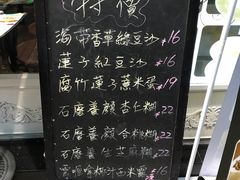 特價
海帶香草綠豆沙 $16
蓮子紅豆沙 $16
腐竹蓮子薏米蛋 $19
石磨養顏杏仁糊 $22
石磨養顏合桃糊 $22
石磨養生芝麻糊 $22
$16